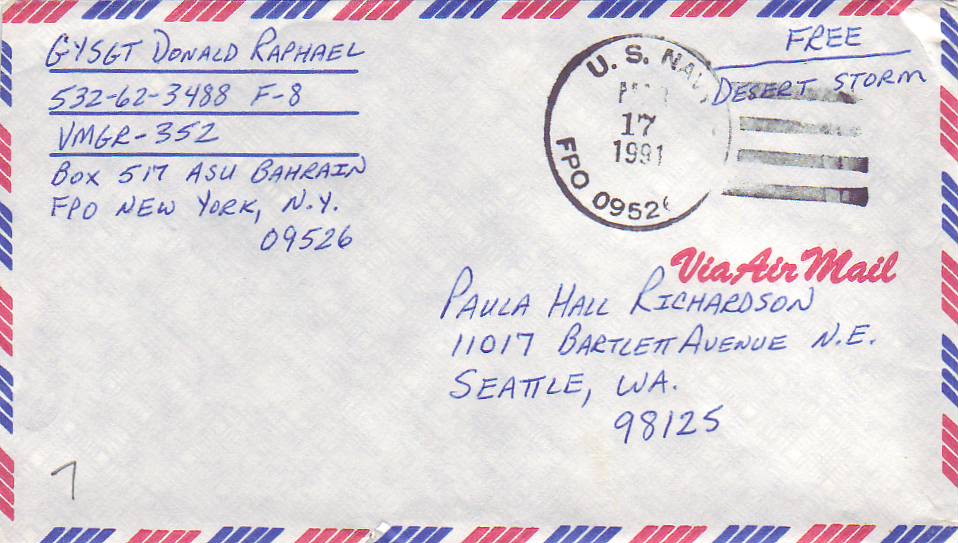 GYSGT DONALD RAPHAEL
532-62-3488 F-8
VMGR-352
BOX 517 ASU BAHRAIN
FPO NEW YORK, N.Y.
09526
U. S. NAVY
17
1991
FPO 09526
FREE
DESERT STORM
Via Air Mail
PAULA HALL RICHARDSON
11017 BARTLETT AVENUE N.E.
SEATTLE, WA.
98125
7